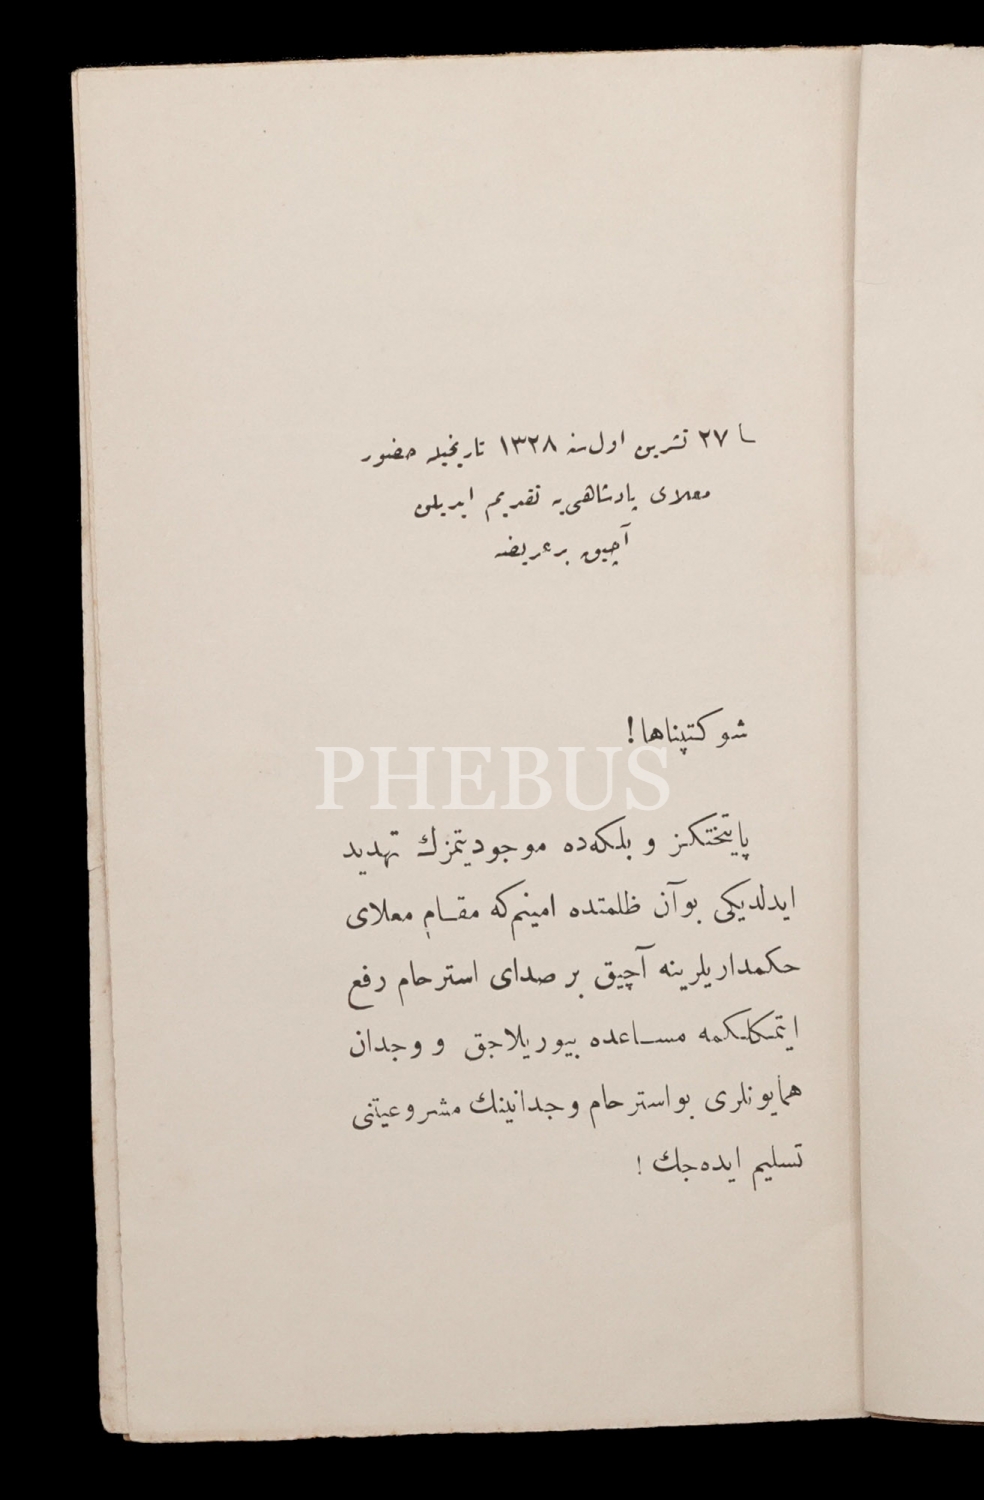 ٢٧ تشرین اول سنه ١٣٢٨ تاریخیله حضور
معلای پادشاهی‌یه تقدیم ایدیلن
آچیق بر عریضه
شوکتپناها!
PHEBUS
پایتختکز و بلکه‌ده موجودیتمزك تهدید
ایدلدیکی بوآن ظلمتده امینم‌که مقام معلای
حکمداریلرینه آچیق بر صدای استرحام رفع
ایتمکلکمه مساعده بیوریلاجق و وجدان
همایونلری بواسترحام وجدانینك مشروعیتنی
تسلیم ایده‌جك !